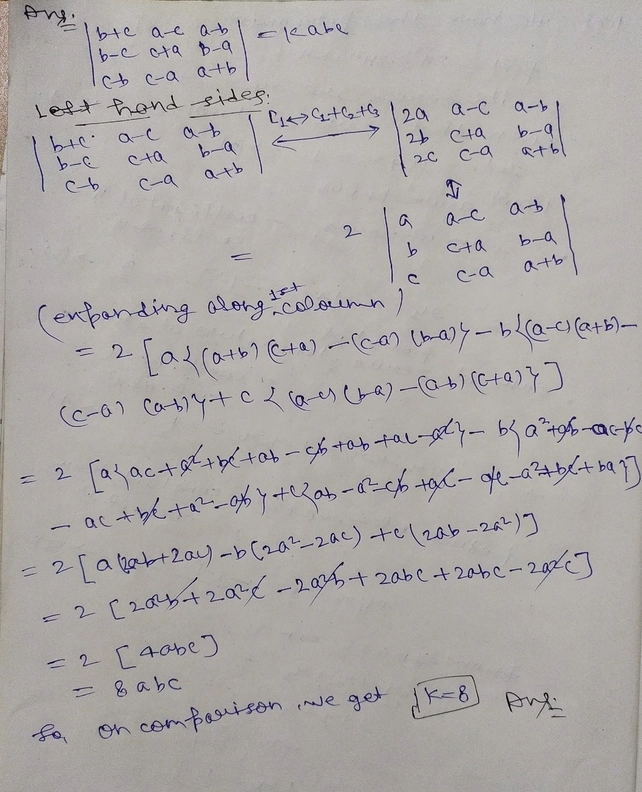 Ans.
| b+c a-c a-b | = kabc
| b-c c+a b-a |
| c-b c-a a+b |
Left hand sides:
| b+c a-c a-b | C₁↔C₁+C₂+C₃ | 2a a-c a-b |
| b-c c+a b-a | ⟷ | 2b c+a b-a |
| c-b c-a a+b | | 2c c-a a+b |
⇕
= 2 | a a-c a-b |
| b c+a b-a |
| c c-a a+b |
(enpanding along 1st coloumn)
= 2 [a{(a+b)(c+a) - (c-a)(b-a)} - b{(a-c)(a+b) -
(c-a)(a-b)} + c{(a-c)(b-a) - (a-b)(c+a)}]
= 2 [a{ac+a²+bc+ab-cb+ab+ac-a²} - b{a²+ab-ac-bc
- ac+bc+a²-ab} + c{ab-a²-cb+ac-ac-a²+bc+ba}]
= 2[a(2ab+2ac) - b(2a²-2ac) + c(2ab-2a²)]
= 2 [2a²b+2a²c - 2a²b + 2abc + 2abc - 2a²c]
= 2 [4abc]
= 8abc
So, on comparison, we get k=8 Ans.